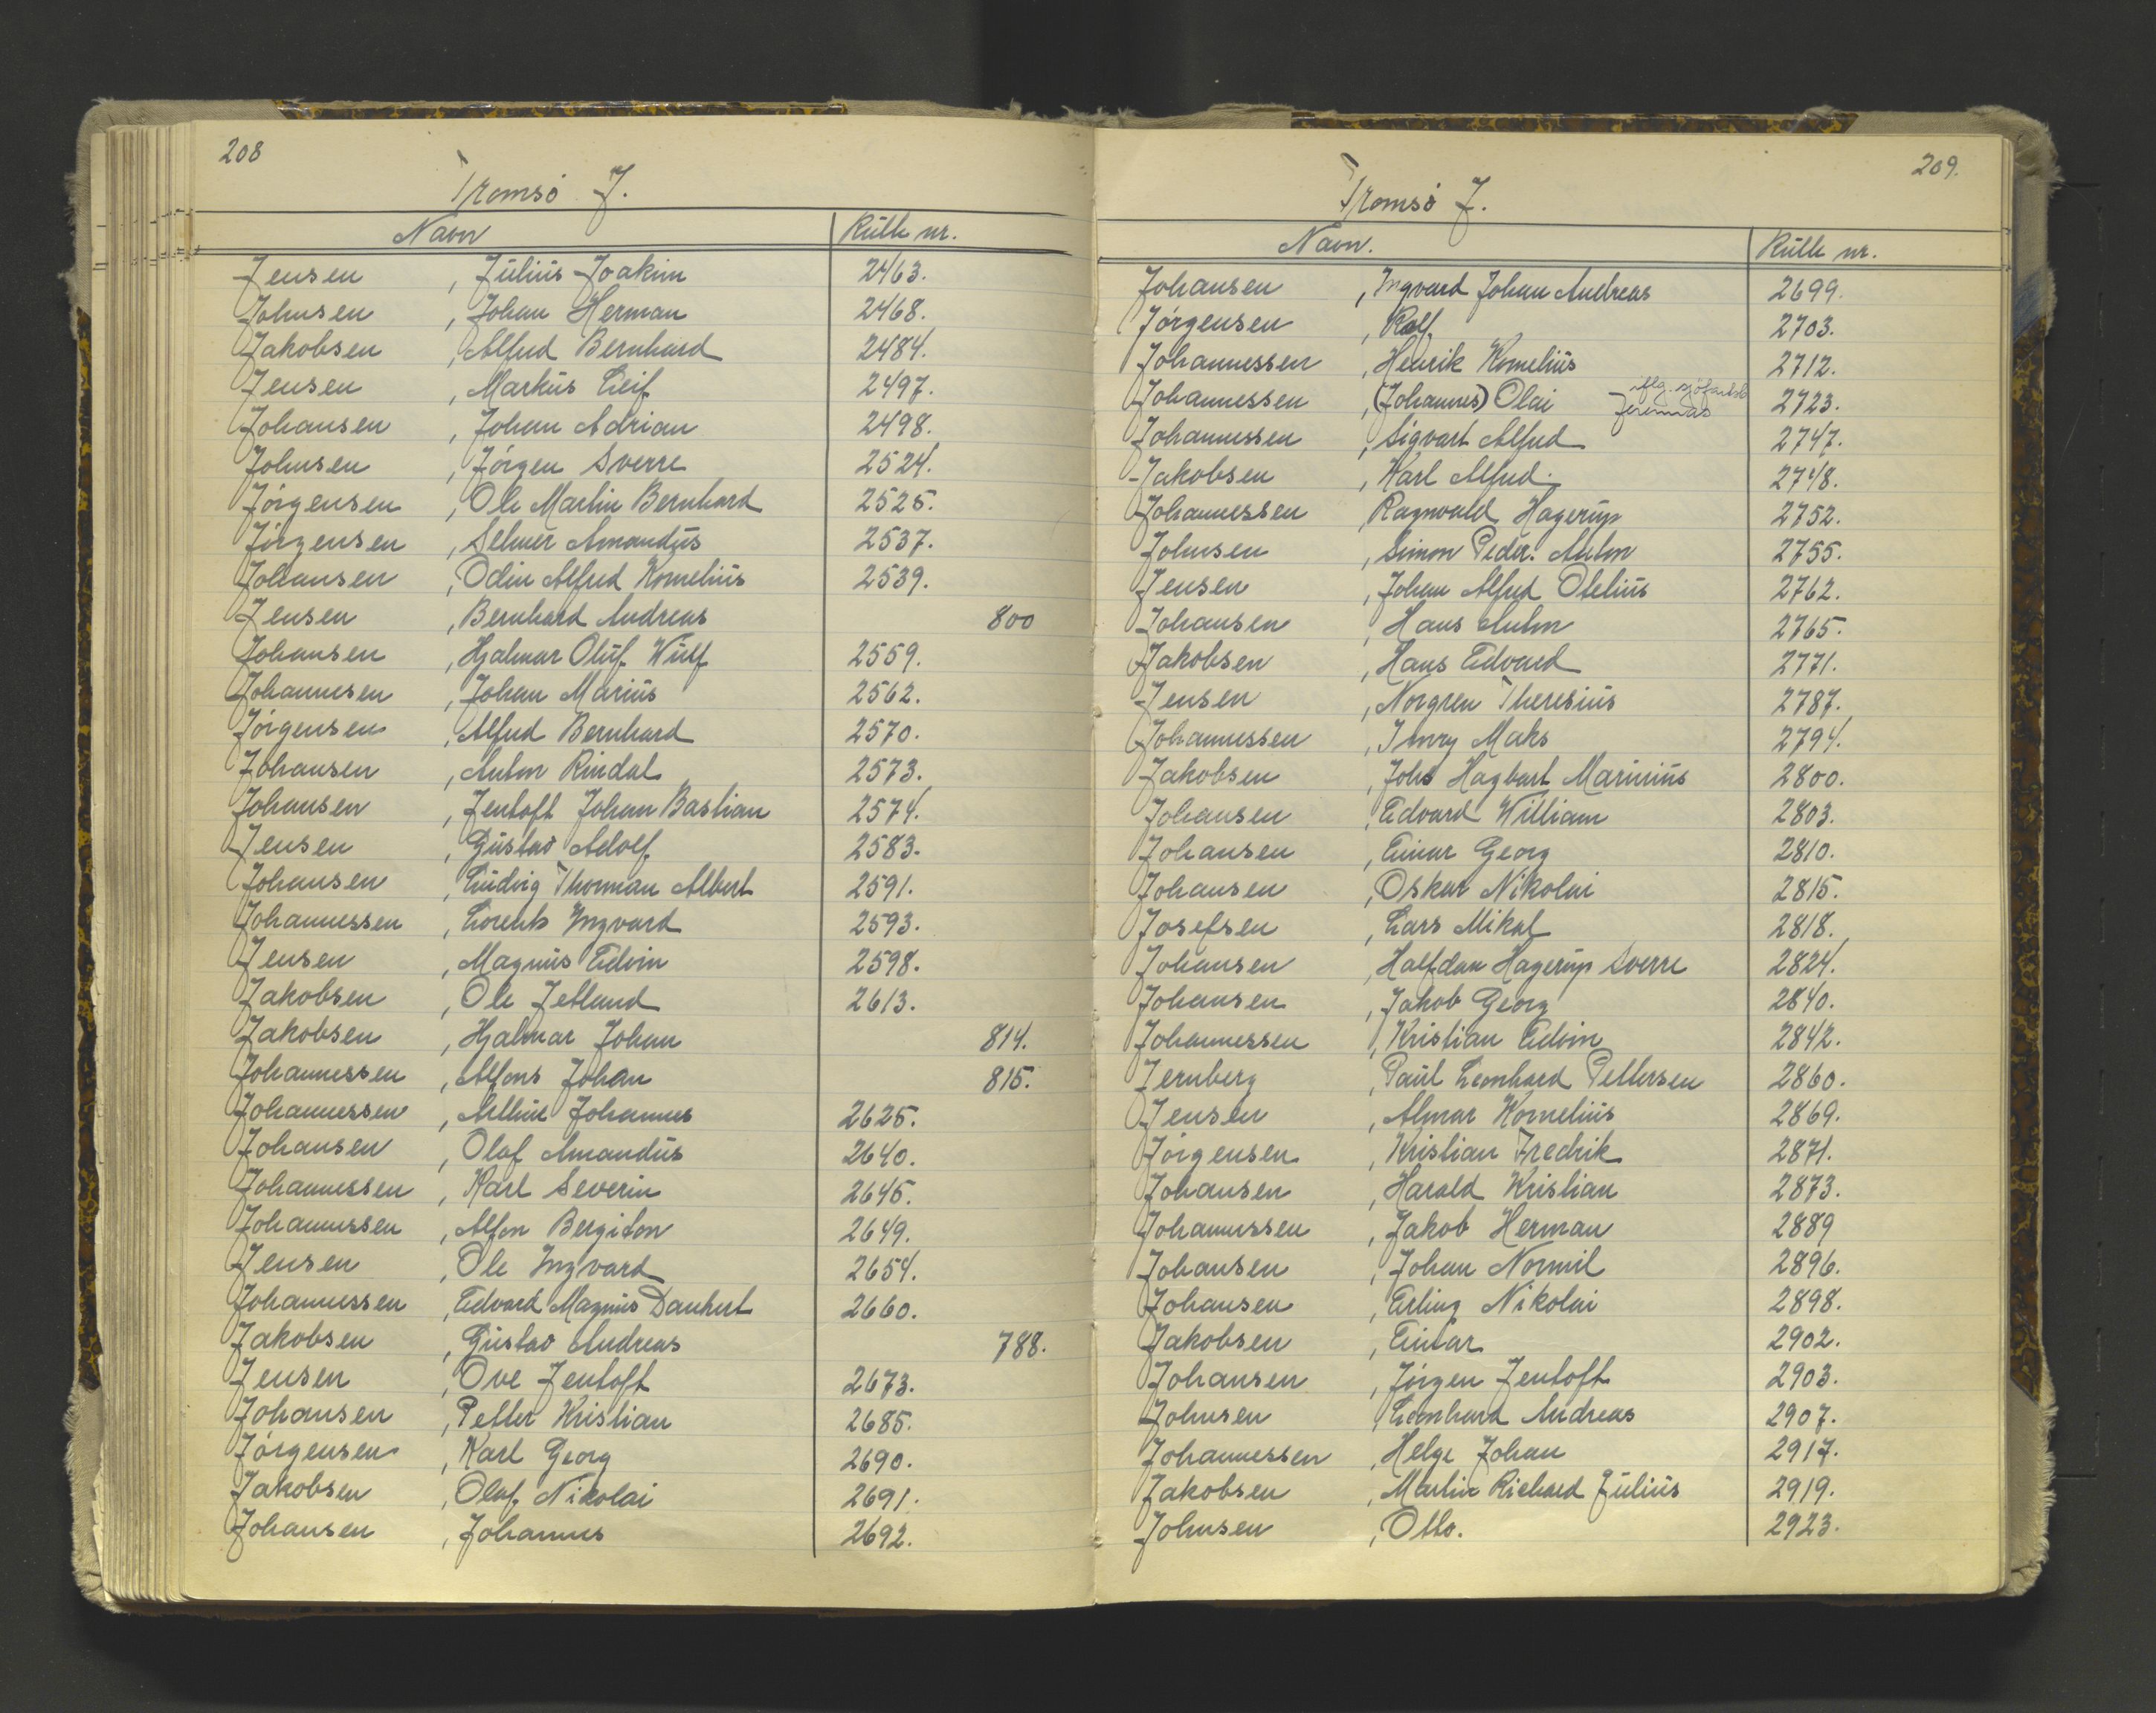 208
Tromsø J.
Navn Rulle nr.
Jensen , Julius Joakim 2463.
Johnsen , Johan Herman 2468.
Jakobsen , Alfred Bernhard 2484.
Jensen , Markus Leif 2497.
Johansen , Johan Adrian 2498.
Johnsen , Jörgen Sverre 2524.
Jörgensen , Ole Martin Bernhard 2525.
Jörgensen , Selmer Amandus 2537.
Johansen , Odin Alfred Kornelius 2539.
Jensen , Bernhard Andreas 800
Johansen , Hjalmar Oluf Wulf 2559.
Johannesen , Johan Marius 2562.
Jörgensen , Alfred Bernhard 2570.
Johansen , Anton Rindal 2573.
Johansen , Jentoft Johan Bastian 2574.
Jensen , Gustav Adolf 2583.
Johansen , Ludvig Thorman Albert 2591.
Johannessen , Lorents Ingvard 2593.
Jensen , Magnus Edvin 2598.
Jakobsen , Ole Jetland 2613.
Jakobsen , Hjalmar Johan 814.
Johannessen , Alfons Johan 815.
Johannessen , Johannes 2625.
Johansen , Olaf Amandus 2640.
Johannessen , Karl Severin 2645.
Johannessen , Alfon Bergiton 2649.
Jensen , Ole Ingvard 2654.
Johannessen , Edvard Magnus Dankert 2660.
Jakobsen , Gustav Andreas 788.
Jensen , Ove Jentoft 2673.
Johansen , Petter Kristian 2685.
Jörgensen , Karl Georg 2690.
Jakobsen , Olaf Nikolai 2691.
Johansen , Johannes 2692.
209.
Tromsø J.
Navn. Rulle nr.
Johansen , Ingvard Johan Andreas 2699.
Jörgensen , Rolf 2703.
Johannessen , Henrik Kornelius 2712.
Johannessen , (Johannes) Olai iflg. sjöfartsb. Jeremias 2723.
Johannessen , Sigvart Alfred 2747.
Jakobsen , Karl Alfred 2748.
Johannessen , Ragnvald Hagerup 2752.
Johnsen , Simon Peder. Anton 2755.
Jensen , Johan Alfred Otelius 2762.
Johansen , Hans Anton 2765.
Jakobsen , Hans Edvard 2771.
Jensen , Norgren Theresius 2787.
Johannessen , Imry Maks 2794.
Jakobsen , Johs Hagbart Marinius 2800.
Johansen , Edvard William 2803.
Johansen , Einar Georg 2810.
Johansen , Oskar Nikolai 2815.
Josefsen , Lars Mikal 2818.
Johansen , Halfdan Hagerup Sverre 2824.
Johansen , Jakob Georg 2840.
Johannessen , Kristian Edvin 2842.
Jernberg , Paul Leonhard Pettersen 2860.
Jensen , Almar Kornelius 2869.
Jörgensen , Kristian Fredrik 2871.
Johansen , Harald Kristian 2873.
Johannessen , Jakob Herman 2889
Johansen , Johan Normil 2896.
Johansen , Erling Nikolai 2898.
Jakobsen , Einar 2902.
Johansen , Jörgen Jentoft 2903.
Johnsen , Leonhard Andreas 2907.
Johannessen , Helge Johan 2917.
Jakobsen , Martin Richard Julius 2919.
Johnsen , Otto. 2923.